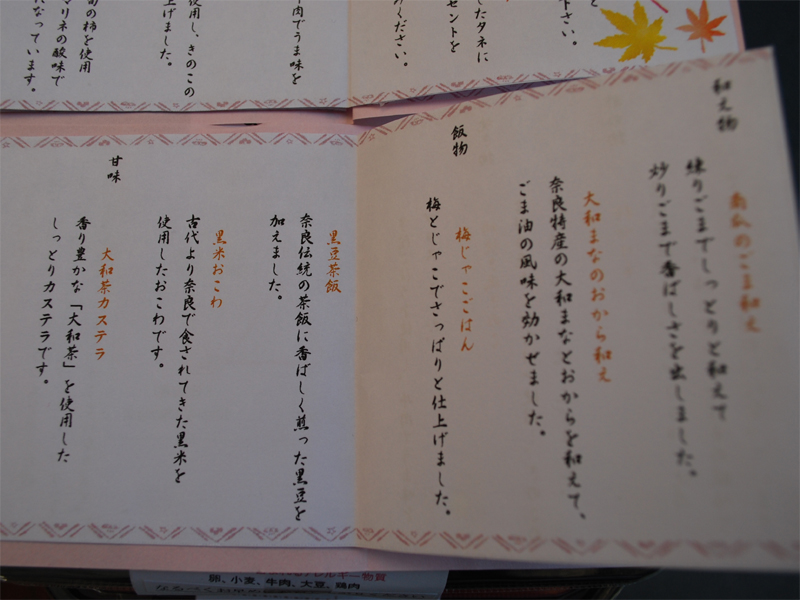 下さい。
したタネに
セントを
みください。
牛肉でうま味を
使用し、きのこの
上げました。
旬の柿を使用
マリネの酸味で
になっています。
和え物
南瓜のごま和え
練りごまでしっとりと和えて
炒りごまで香ばしさを出しました。
大和まなのおから和え
奈良特産の大和まなとおからを和えて、
ごま油の風味を効かせました。
飯物
梅じゃこごはん
梅とじゃこでさっぱりと仕上げました。
黒豆茶飯
奈良伝統の茶飯に香ばしく煎った黒豆を
加えました。
黒米おこわ
古代より奈良で食されてきた黒米を
使用したおこわです。
甘味
大和茶カステラ
香り豊かな「大和茶」を使用した
しっとりカステラです。
アレルギー物質
卵、小麦、牛肉、大豆、鶏肉